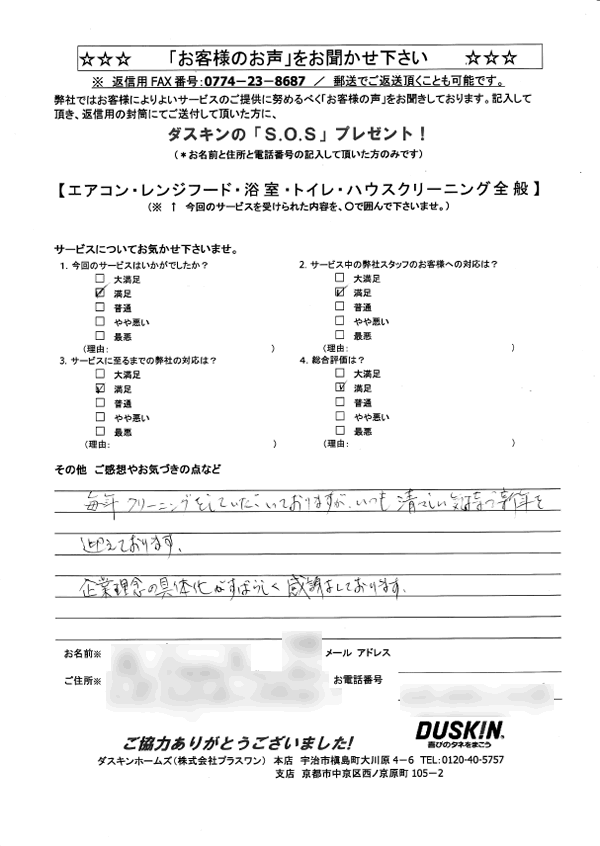 ☆☆☆ 「お客様のお声」をお聞かせ下さい ☆☆☆
※ 返信用FAX番号:0774-23-8687 / 郵送でご返送頂くことも可能です。
弊社ではお客様によりよいサービスのご提供に努めるべく「お客様の声」をお聞きしております。記入して
頂き、返信用の封筒にてご送付して頂いた方に、
ダスキンの「S.O.S」プレゼント!
(*お名前と住所と電話番号の記入して頂いた方のみです)
【エアコン・レンジフード・浴室・トイレ・ハウスクリーニング全般】
(※ ↑ 今回のサービスを受けられた内容を、〇で囲んで下さいませ。)
サービスについてお気かせ下さいませ。
1. 今回のサービスはいかがでしたか?
□ 大満足
☑ 満足
□ 普通
□ やや悪い
□ 最悪
(理由: )
2. サービス中の弊社スタッフのお客様への対応は?
□ 大満足
☑ 満足
□ 普通
□ やや悪い
□ 最悪
(理由: )
3. サービスに至るまでの弊社の対応は?
□ 大満足
☑ 満足
□ 普通
□ やや悪い
□ 最悪
(理由: )
4. 総合評価は?
□ 大満足
☑ 満足
□ 普通
□ やや悪い
□ 最悪
(理由: )
その他 ご感想やお気づきの点など
毎年クリーニングをしていただいておりますが、いつも清々しい気持で新年を
迎えております。
企業理念の具体化がすばらしく感謝しております。
お名前※
メール アドレス
ご住所※
お電話番号
ご協力ありがとうございました!
DUSKIN
喜びのタネをまこう
ダスキンホームズ(株式会社プラスワン) 本店 宇治市槇島町大川原 4-6 TEL:0120-40-5757
支店 京都市中京区西ノ京原町 105-2